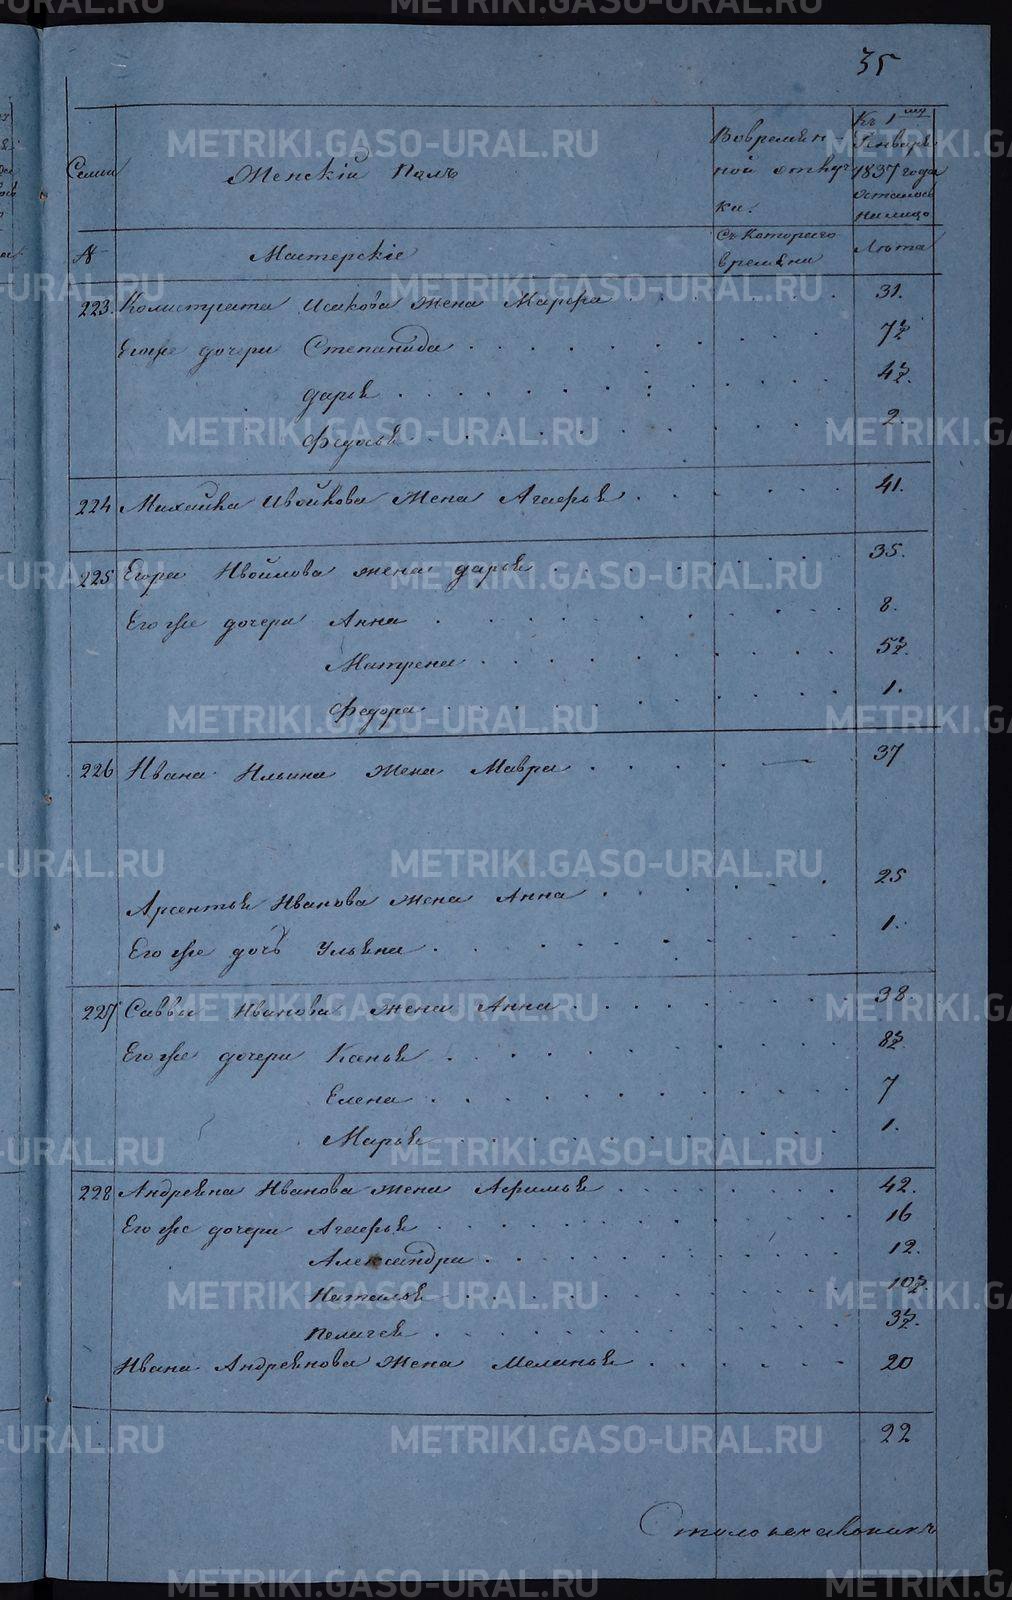 35
Семьи
Женскій Полъ
Вовремян-
ной отлуч
ки.
Къ 1му
Генваря
1837 года
осталось
налицо
№
Мастерскіе
Съ Котораго
времяни
Лѣта
223. Колистрата Исакова жена Марфа 31.
Егоже дочери Степанида 7½
дарья 4½.
федосья 2.
224 Михайла Ивойлова жена Агафья 41.
225 Егора Ивойлова жена дарья 35.
Его же дочери Анна 8.
Матрена 5½.
федора 1.
226 Ивана Ильина жена Мавра 37
Арсентья Иванова жена Анна 25
Его же дочь Ульяна 1.
227 Саввы Иванова жена Анна 38
Его же дочери Ксенья 8½
Елена 7
Марья 1.
228 Андреяна Иванова жена Афимья 42.
Его же дочери Агафья 16
Александра 12.
Наталья 10½.
Пелагея 3½.
Ивана Андреянова жена Меланья 20
22
Столоначальникъ
METRIKI.GASO-URAL.RU